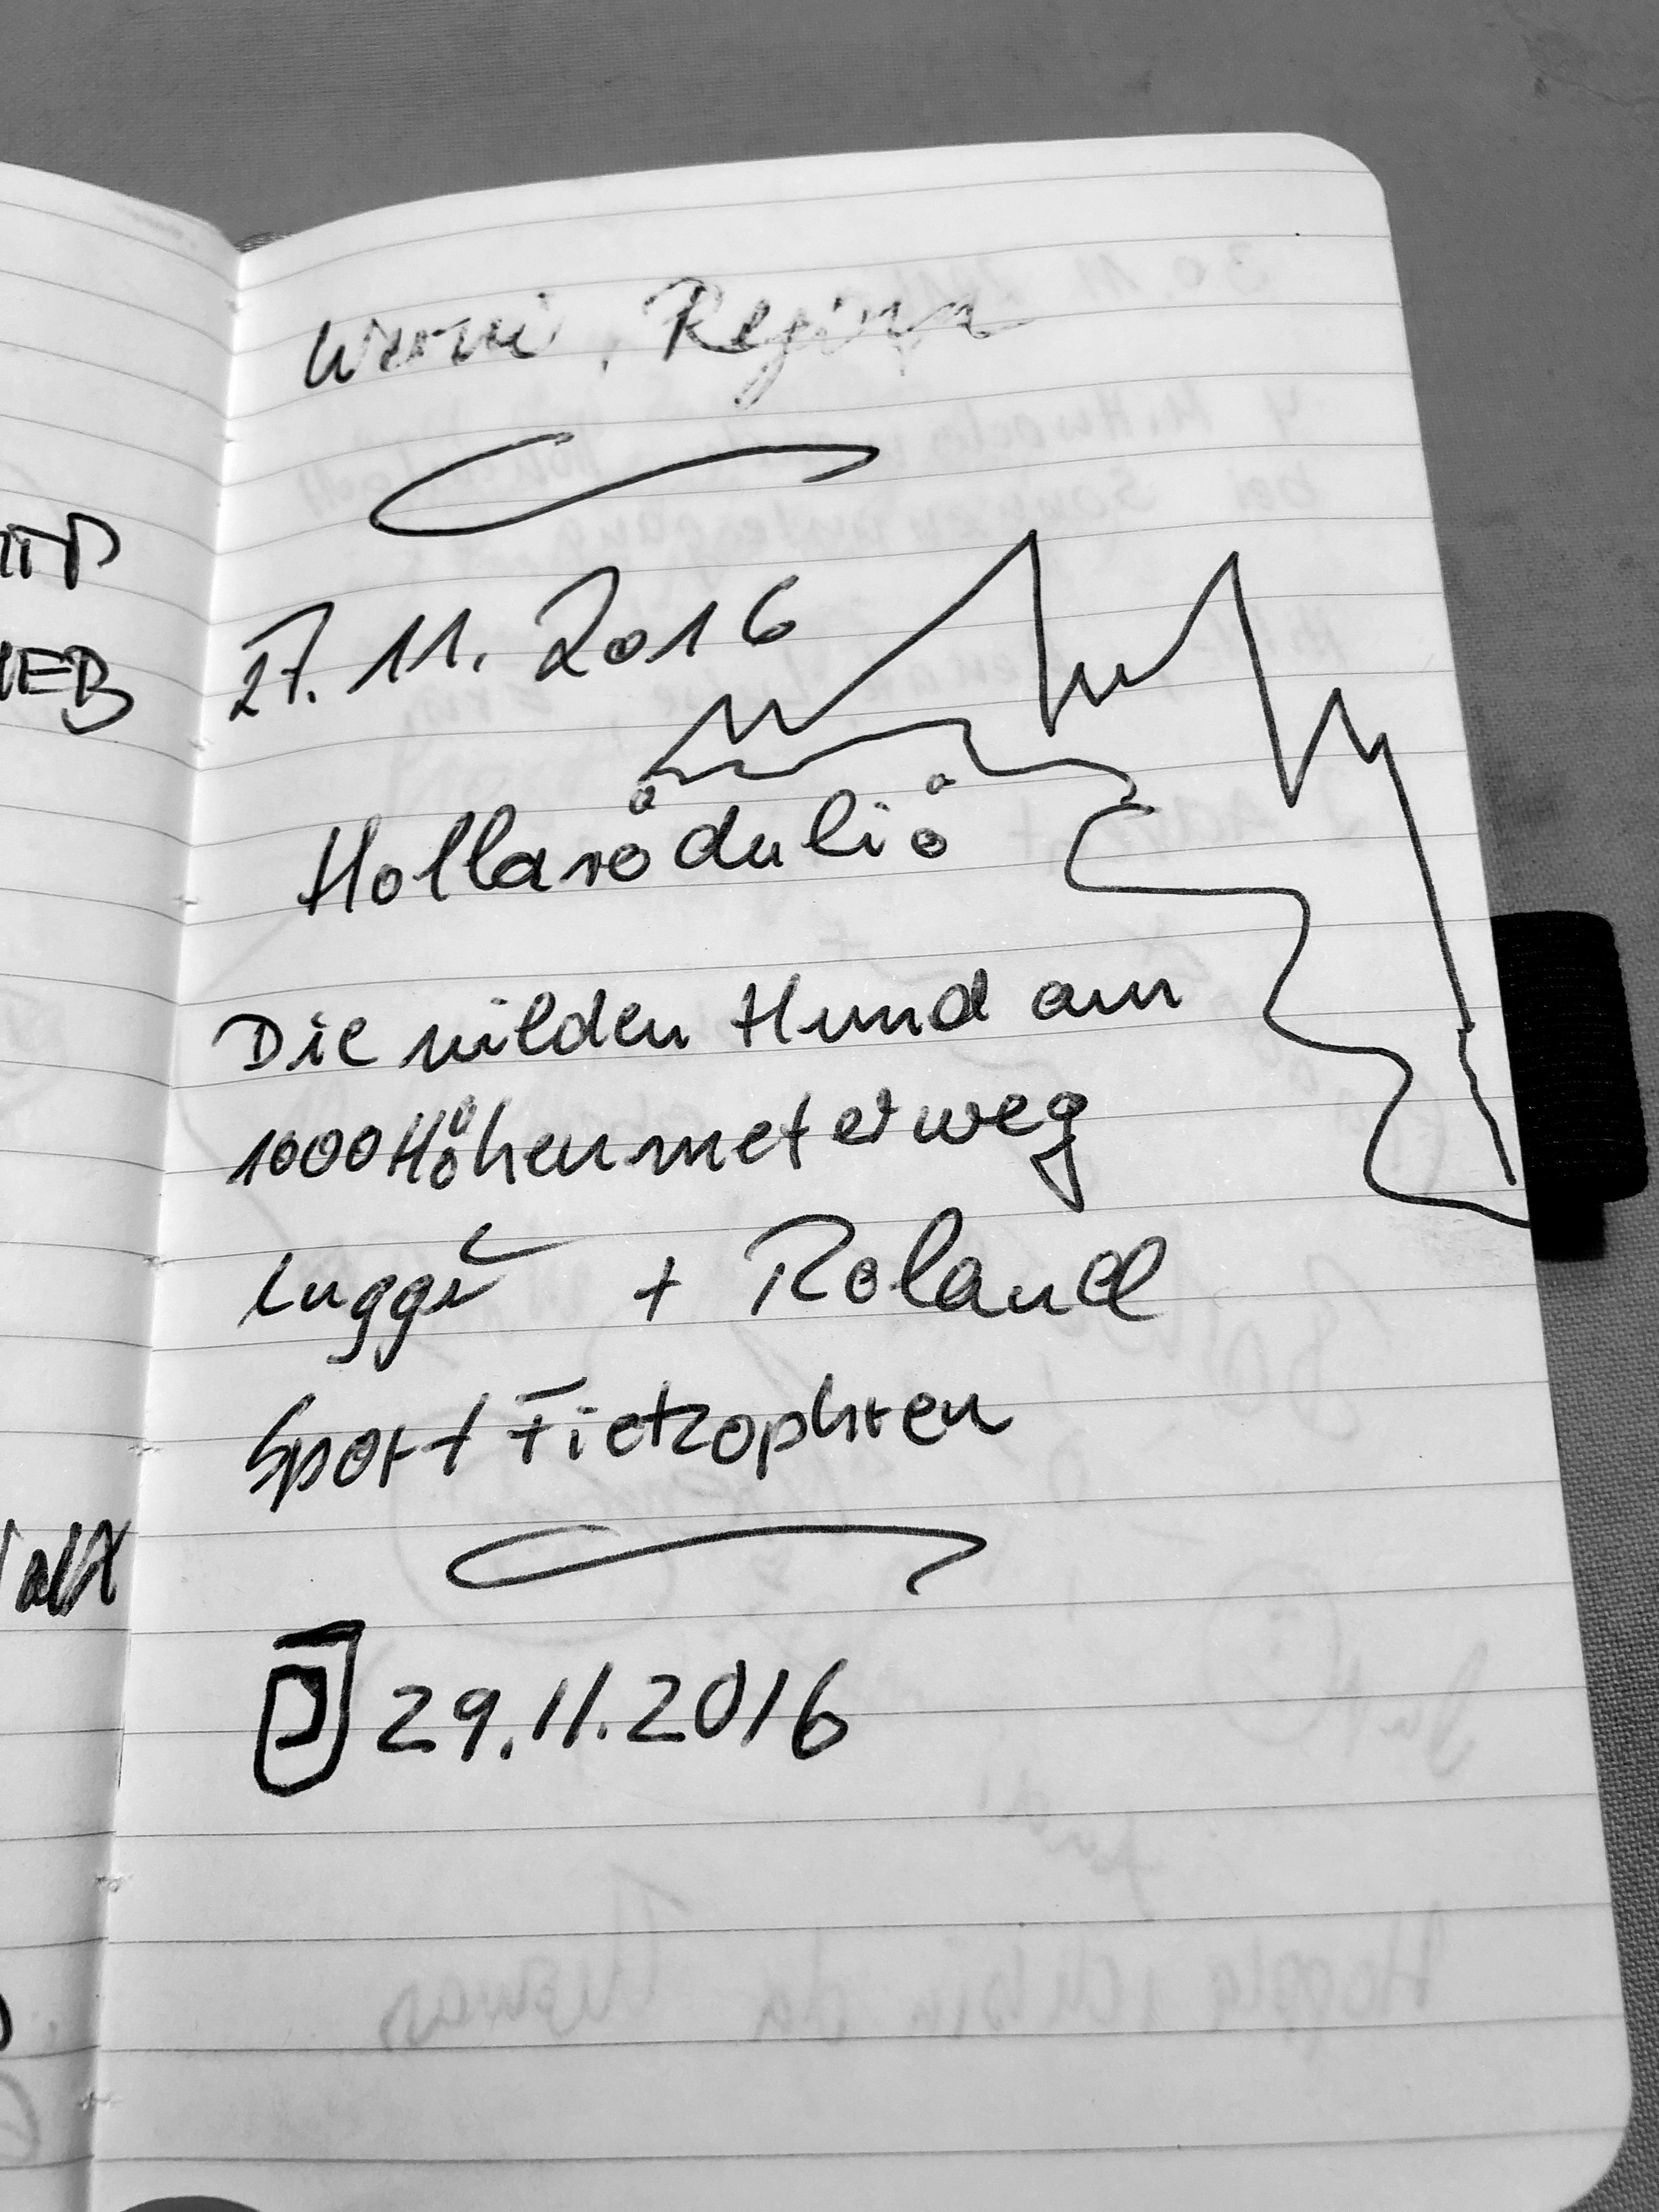 Regina
27.11.2016
Hollaröduliö
Die wilden Hund am
1000 Höhenmeterweg
Luggi + Roland
Sport Fietzophren
29.11.2016